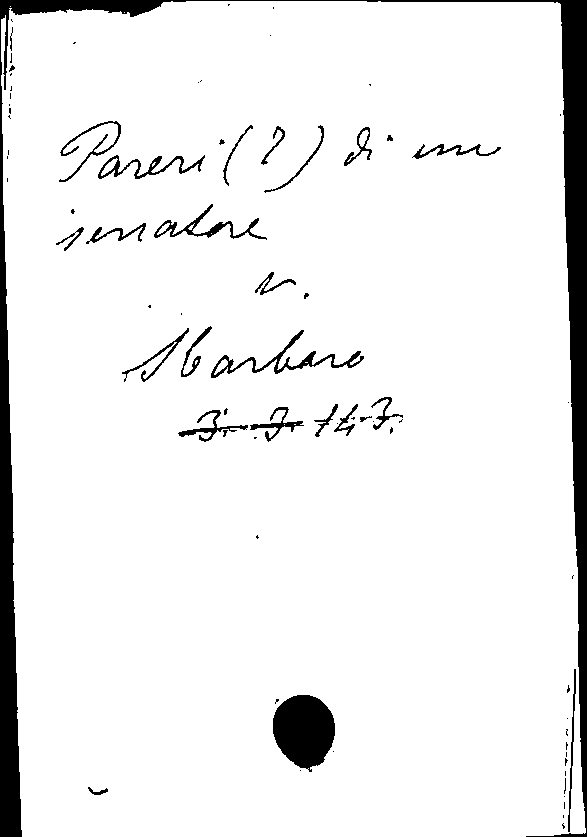 Pareri (?) di un
senatore
v.
Sbarbaro
3. J. 143.